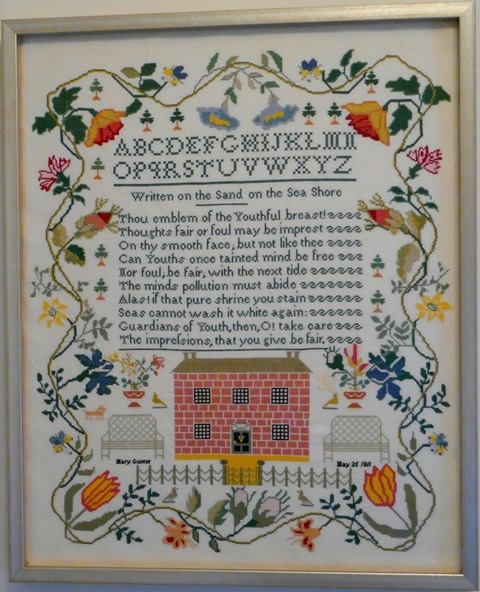 ABCDEFGHIJKLMN
OPQRSTUVWXYZ
Written on the Sand on the Sea Shore
Thou emblem of the Youthful breast!
Thoughts fair or foul may be imprest
On thy smooth face; but not like thee
Can Youths once tainted mind be free
Nor foul, be fair, with the next tide
The minds pollution must abide
Alas! if that pure shrine you stain
Seas cannot wash it white again:
Guardians of Youth, then, O! take care
The impreſsions, that you give be fair.
Mary Gunter
May 25